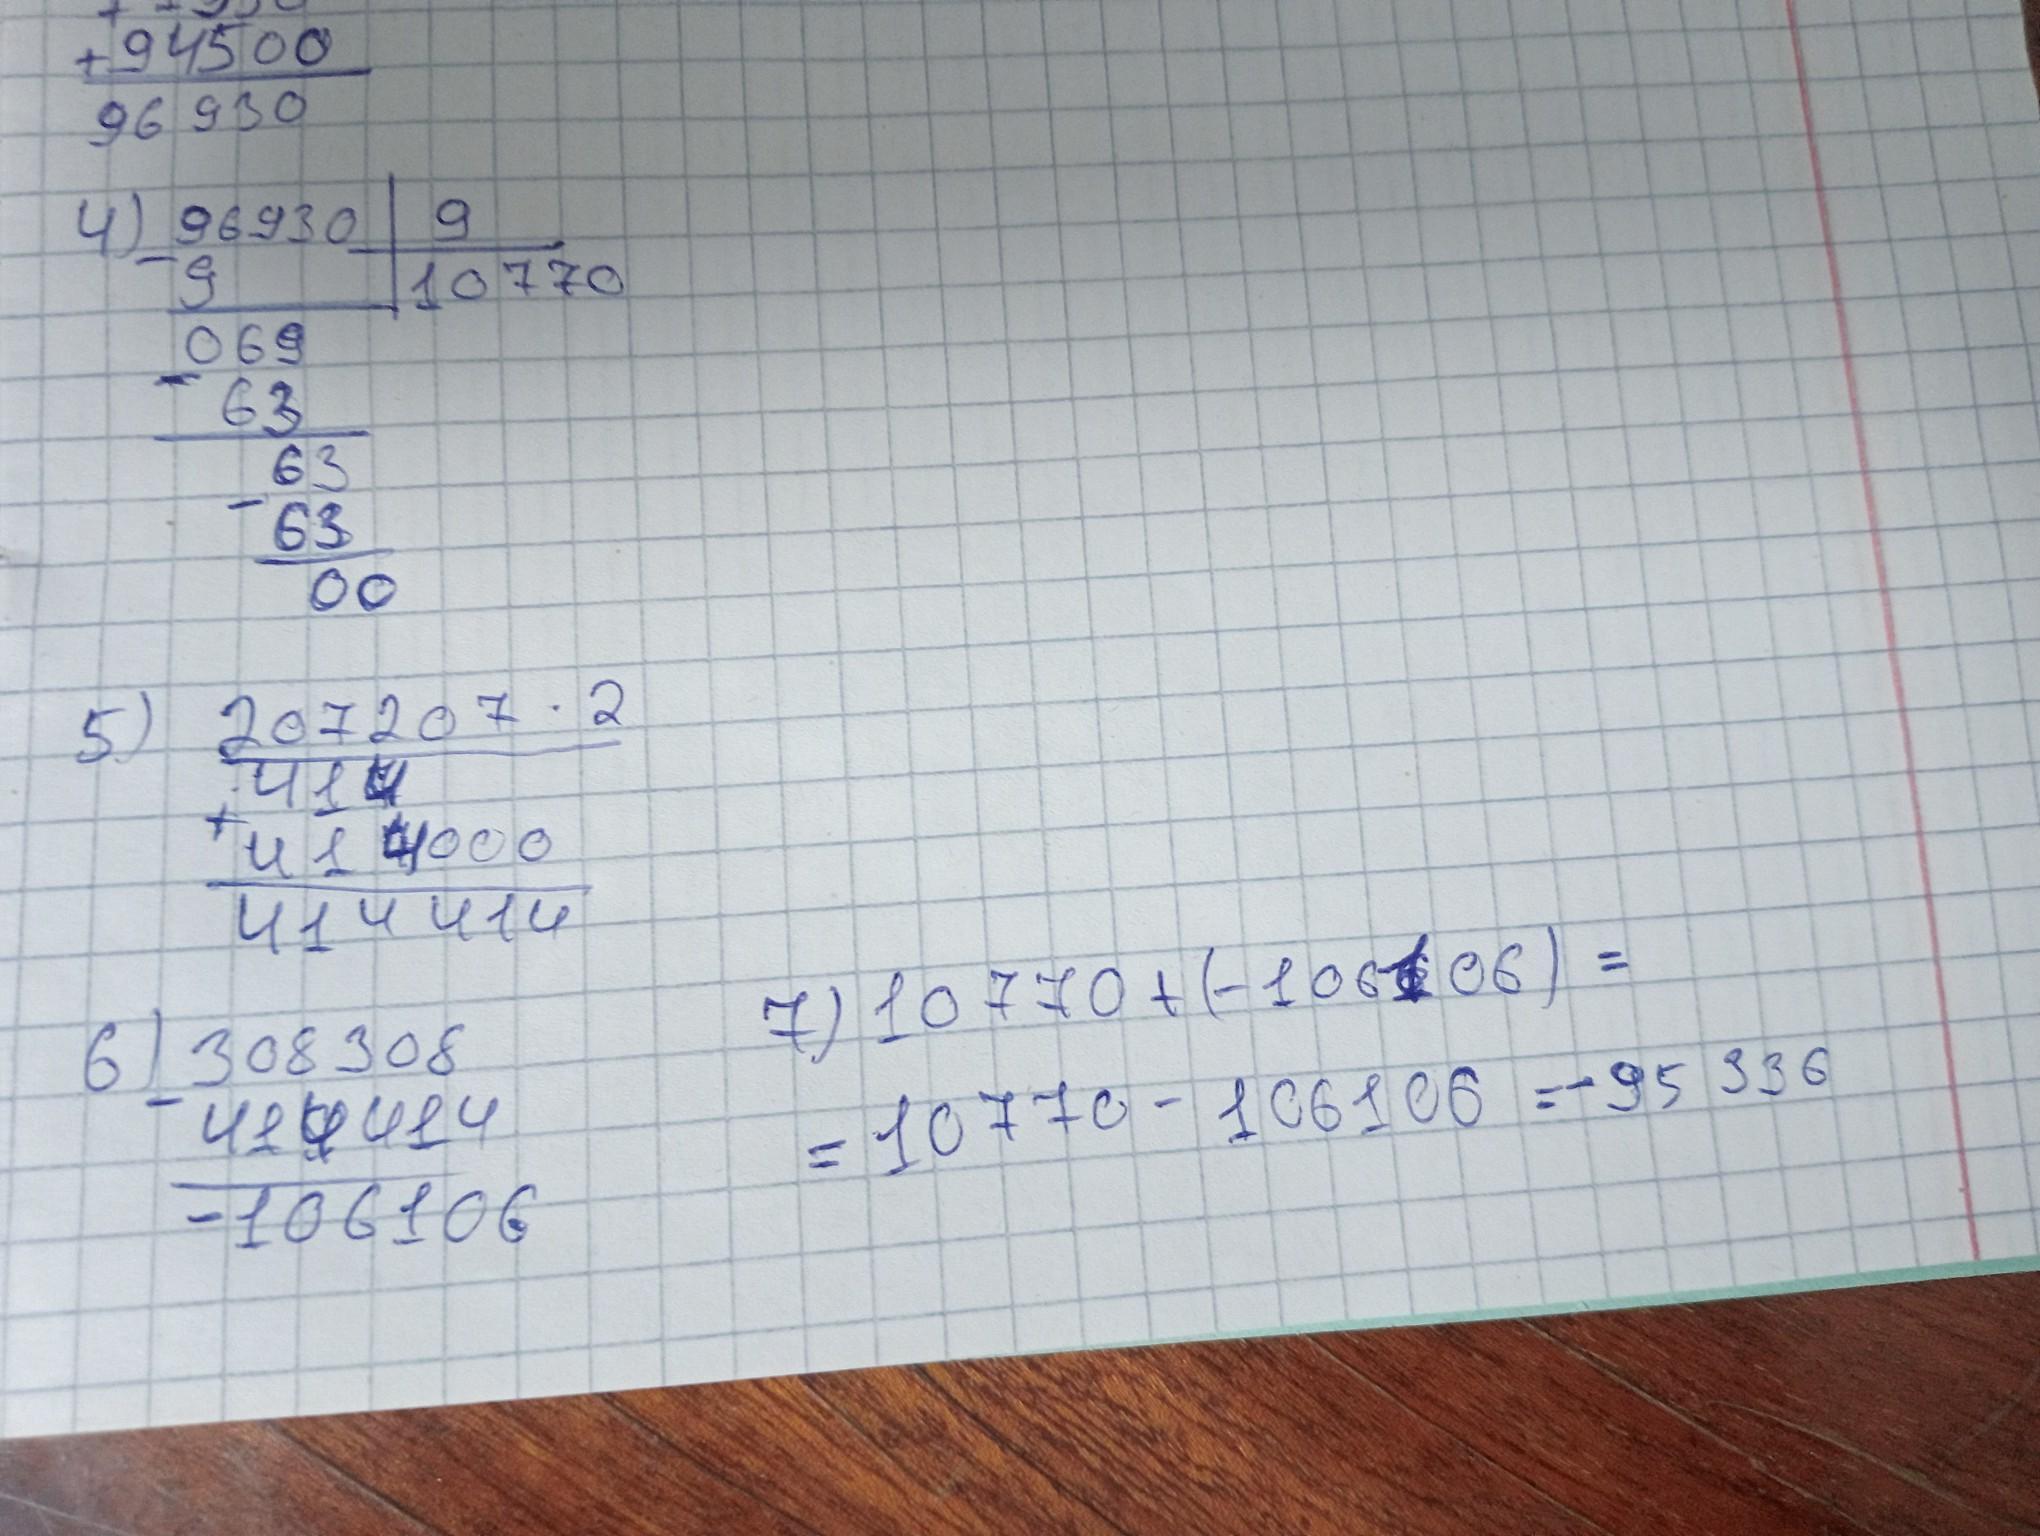 +94500
96930
4) 96930 | 9
- 9 | 10770
069
- 63
63
- 63
00
5) 207207 · 2
414
+
414000
414414
6) 308308
- 414414
-106106
7) 10770+(-106106) =
= 10770 - 106106 = -95 336